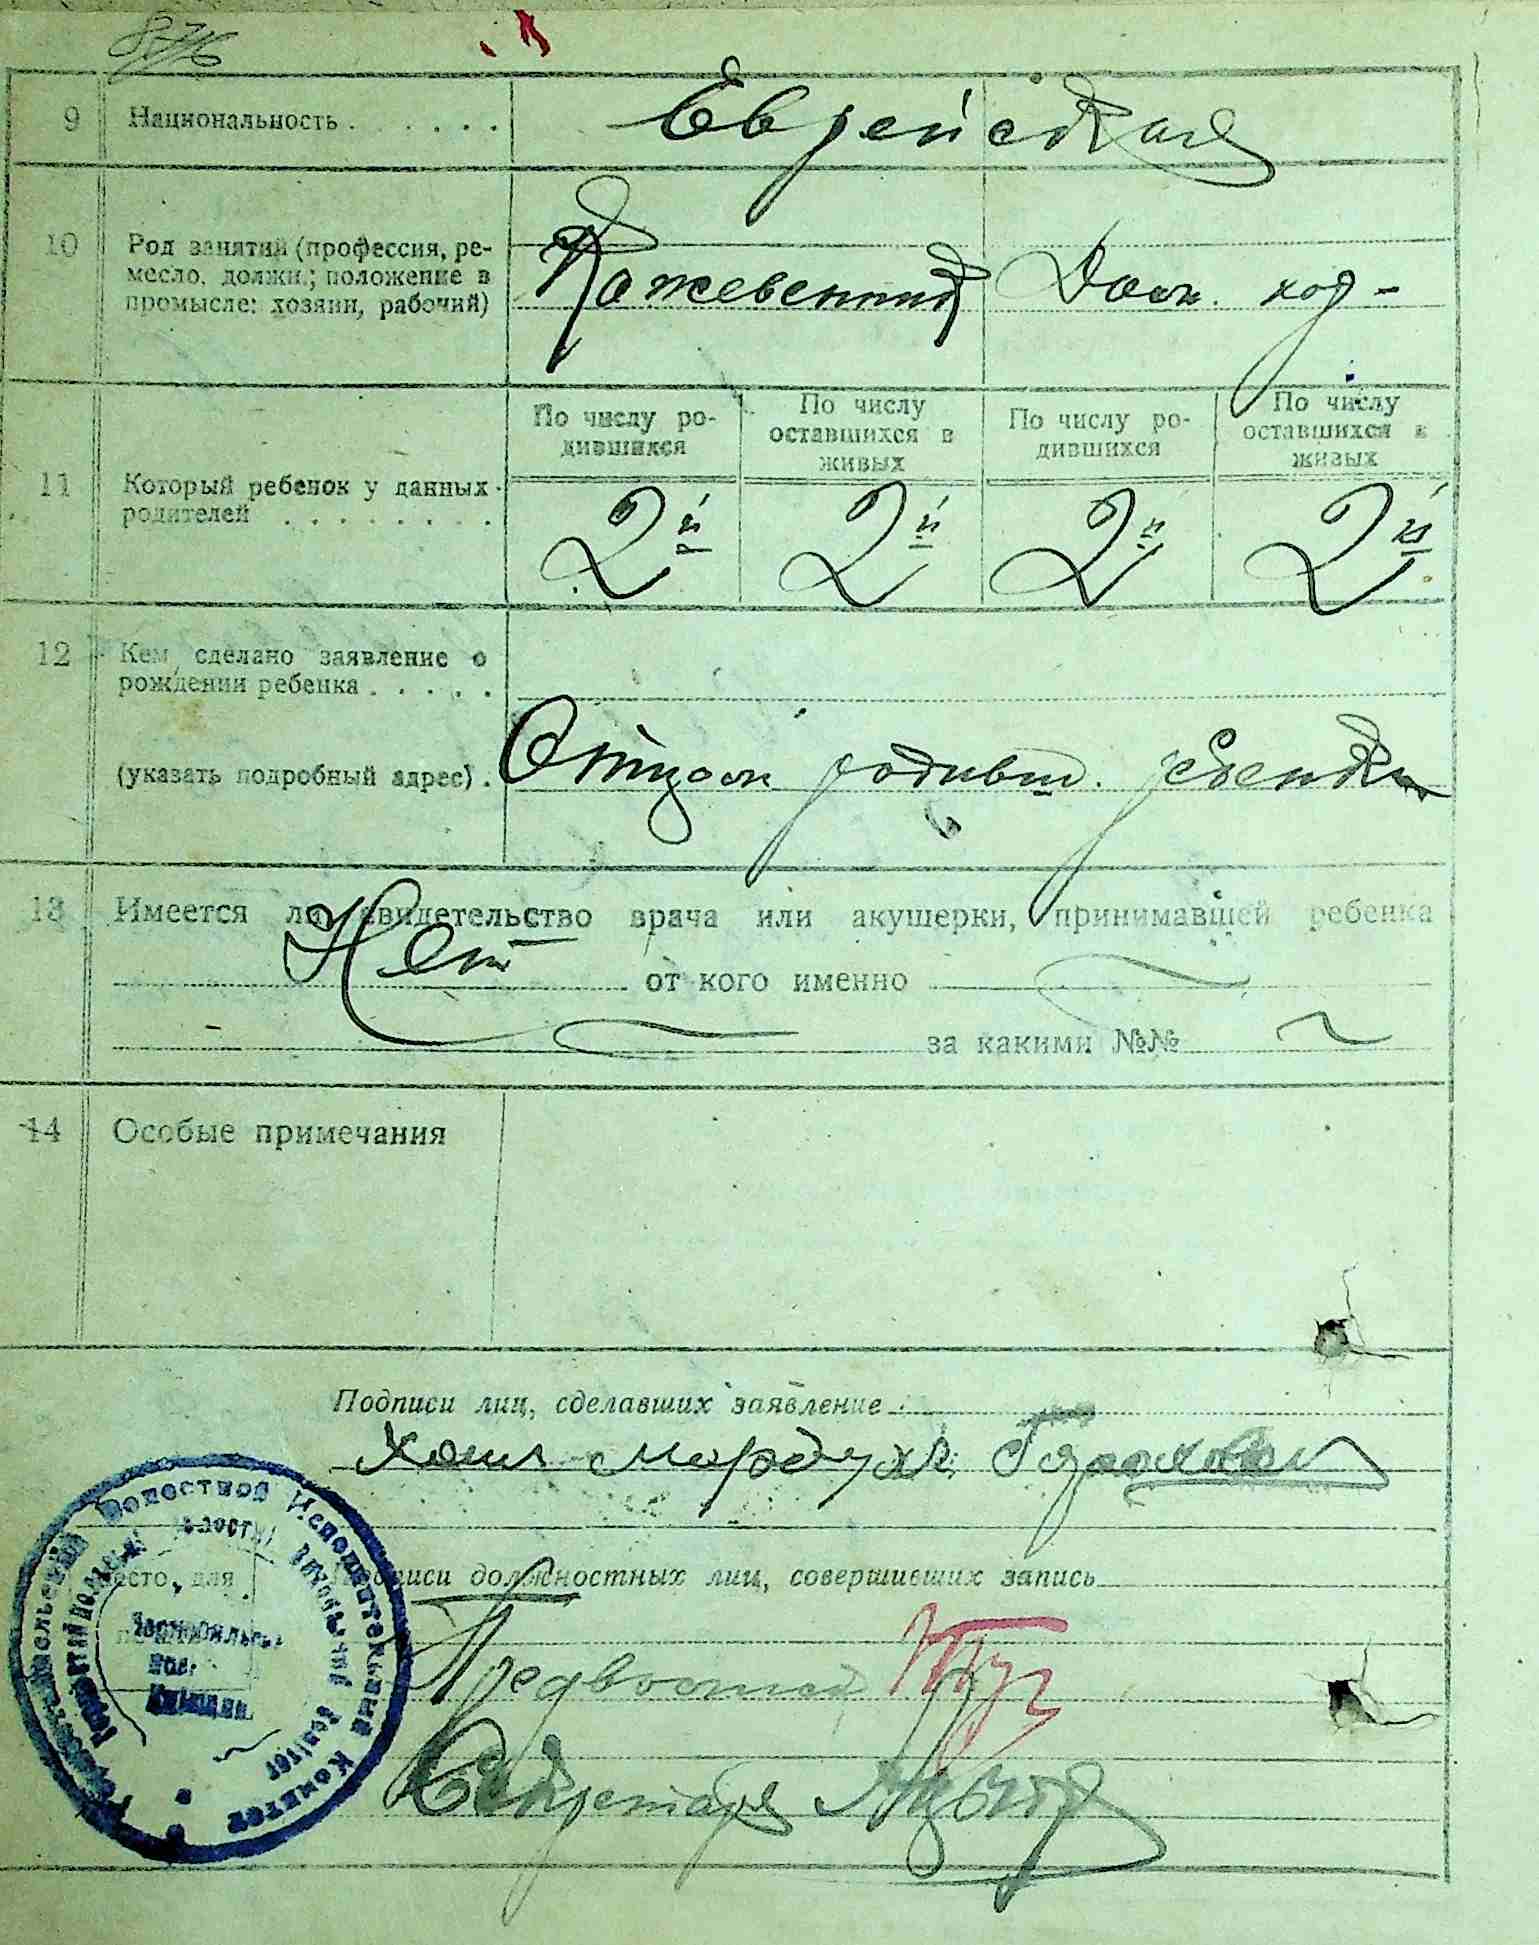 9 Национальность . . . . . . Еврейская
10 Род занятий (профессия, ре-
месло, должн.; положение в
промысле: хозяин, рабочий)
Кожевенник Дом. хоз-
По числу ро-
дившихся
По числу
оставшихся в
живых
По числу ро-
дившихся
По числу
оставшихся в
живых
11 Который ребенок у данных
родителей . . . . . . . .
2й 2й 2й 2й
12 Кем сделано заявление о
рождении ребенка . . . . .
(указать подробный адрес) .
Отцом родивш. ребенка
13 Имеется ли свидетельство врача или акушерки, принимавшей ребенка
Нет от кого именно
за какими №№
14 Особые примечания
Подписи лиц, сделавших заявление
Хаим Мордух
Место для
Подписи должностных лиц, совершивших запись
Волостной Исполнительный Комитет
Предволисп
Секретарь